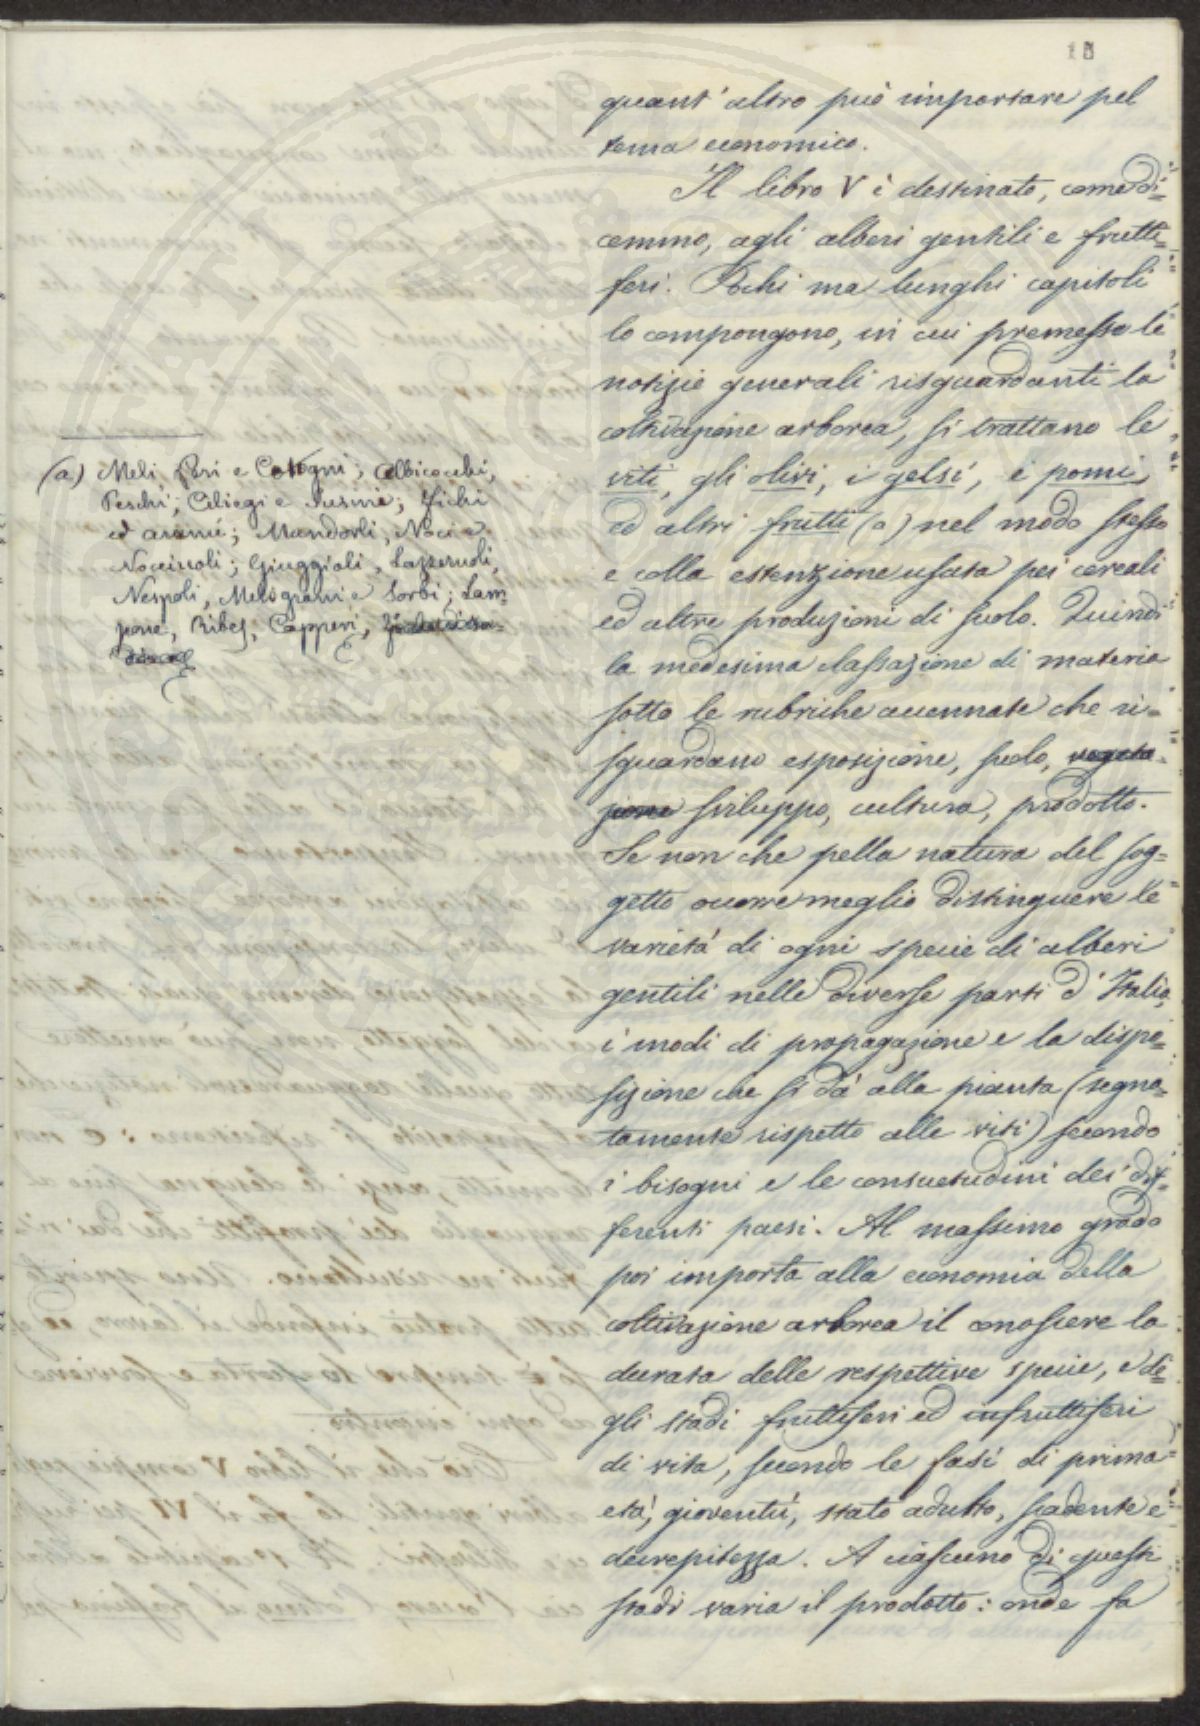 15
quant' altro può importare pel
tema economico.
Il libro V è destinato, come di=
cemmo, agli alberi gentili e frutti=
feri. Pochi ma lunghi capitoli
lo compongono, in cui premesse le
notizie generali risguardanti la
coltivazione arborea, si trattano le
viti, gli olivi, i gelsi, i pomi,
ed altri frutti (a) nel modo stesso
e colla estenzione usata pei cereali
ed altre produzioni di suolo. Quindi
la medesima classazione di materia
sotto le rubriche accennate che ri=
sguardano esposizione, suolo, vegeta=
zione sviluppo, cultura, prodotto.
Se non che pella natura del sog=
getto occorre meglio distinguere le
varietà di ogni specie di alberi
gentili nelle diverse parti d'Italia,
i modi di propagazione e la dispo=
sizione che si dà alla pianta (segna=
tamente rispetto alle viti) secondo
i bisogni e le consuetudini dei dif=
ferenti paesi. Al massimo grado
poi importa alla economia della
coltivazione arborea il conoscere la
durata delle respettive specie, e de=
gli stadi fruttiferi ed infruttiferi
di vita, secondo le fasi di prima
età, gioventù, stato adulto, scadente e
decrepitezza. A ciascuno di questi
stadi varia il prodotto: onde fa
(a) Meli, Peri e Cotogni; Albicocchi,
Peschi; Ciliegi e Susine; Fichi
ed aranci; Mandorli, Noci e
Nocciuoli; Giuggioli, Lazzeruoli,
Nespoli, Melograni e Sorbi; Lam=
pone, Ribes, Capperi,